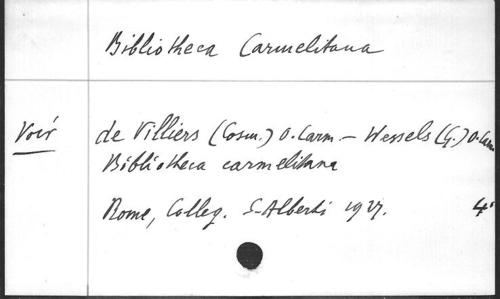 Bibliotheca Carmelitana
Voir de Villiers (Cosm.) O. Carm. – Wessels (G.) O. Carm
Bibliotheca carmelitana
Rome, Colleg. S. Alberti 1927. 4°